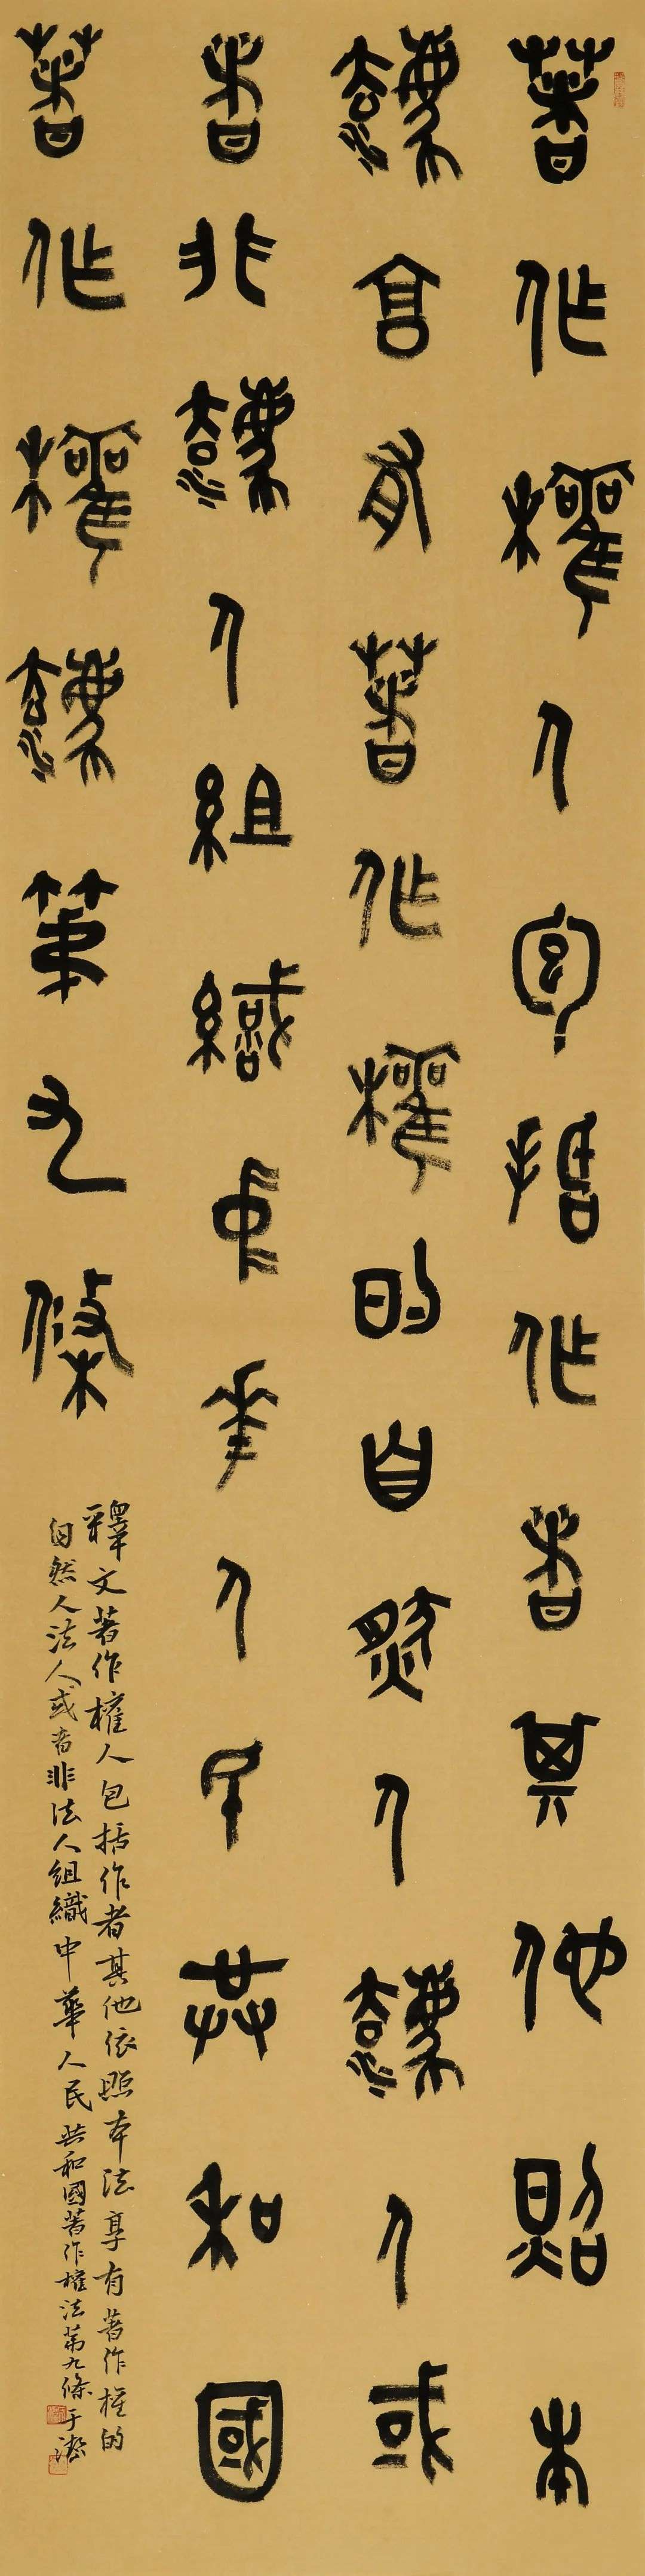 著作權人包括作者其他照本
灋享有著作權的自然人灋人或
者非灋人組織中華人民共和國
著作權灋第九條
釋文著作權人包括作者其他依照本法享有著作權的
自然人法人或者非法人組織中華人民共和國著作權法第九條于